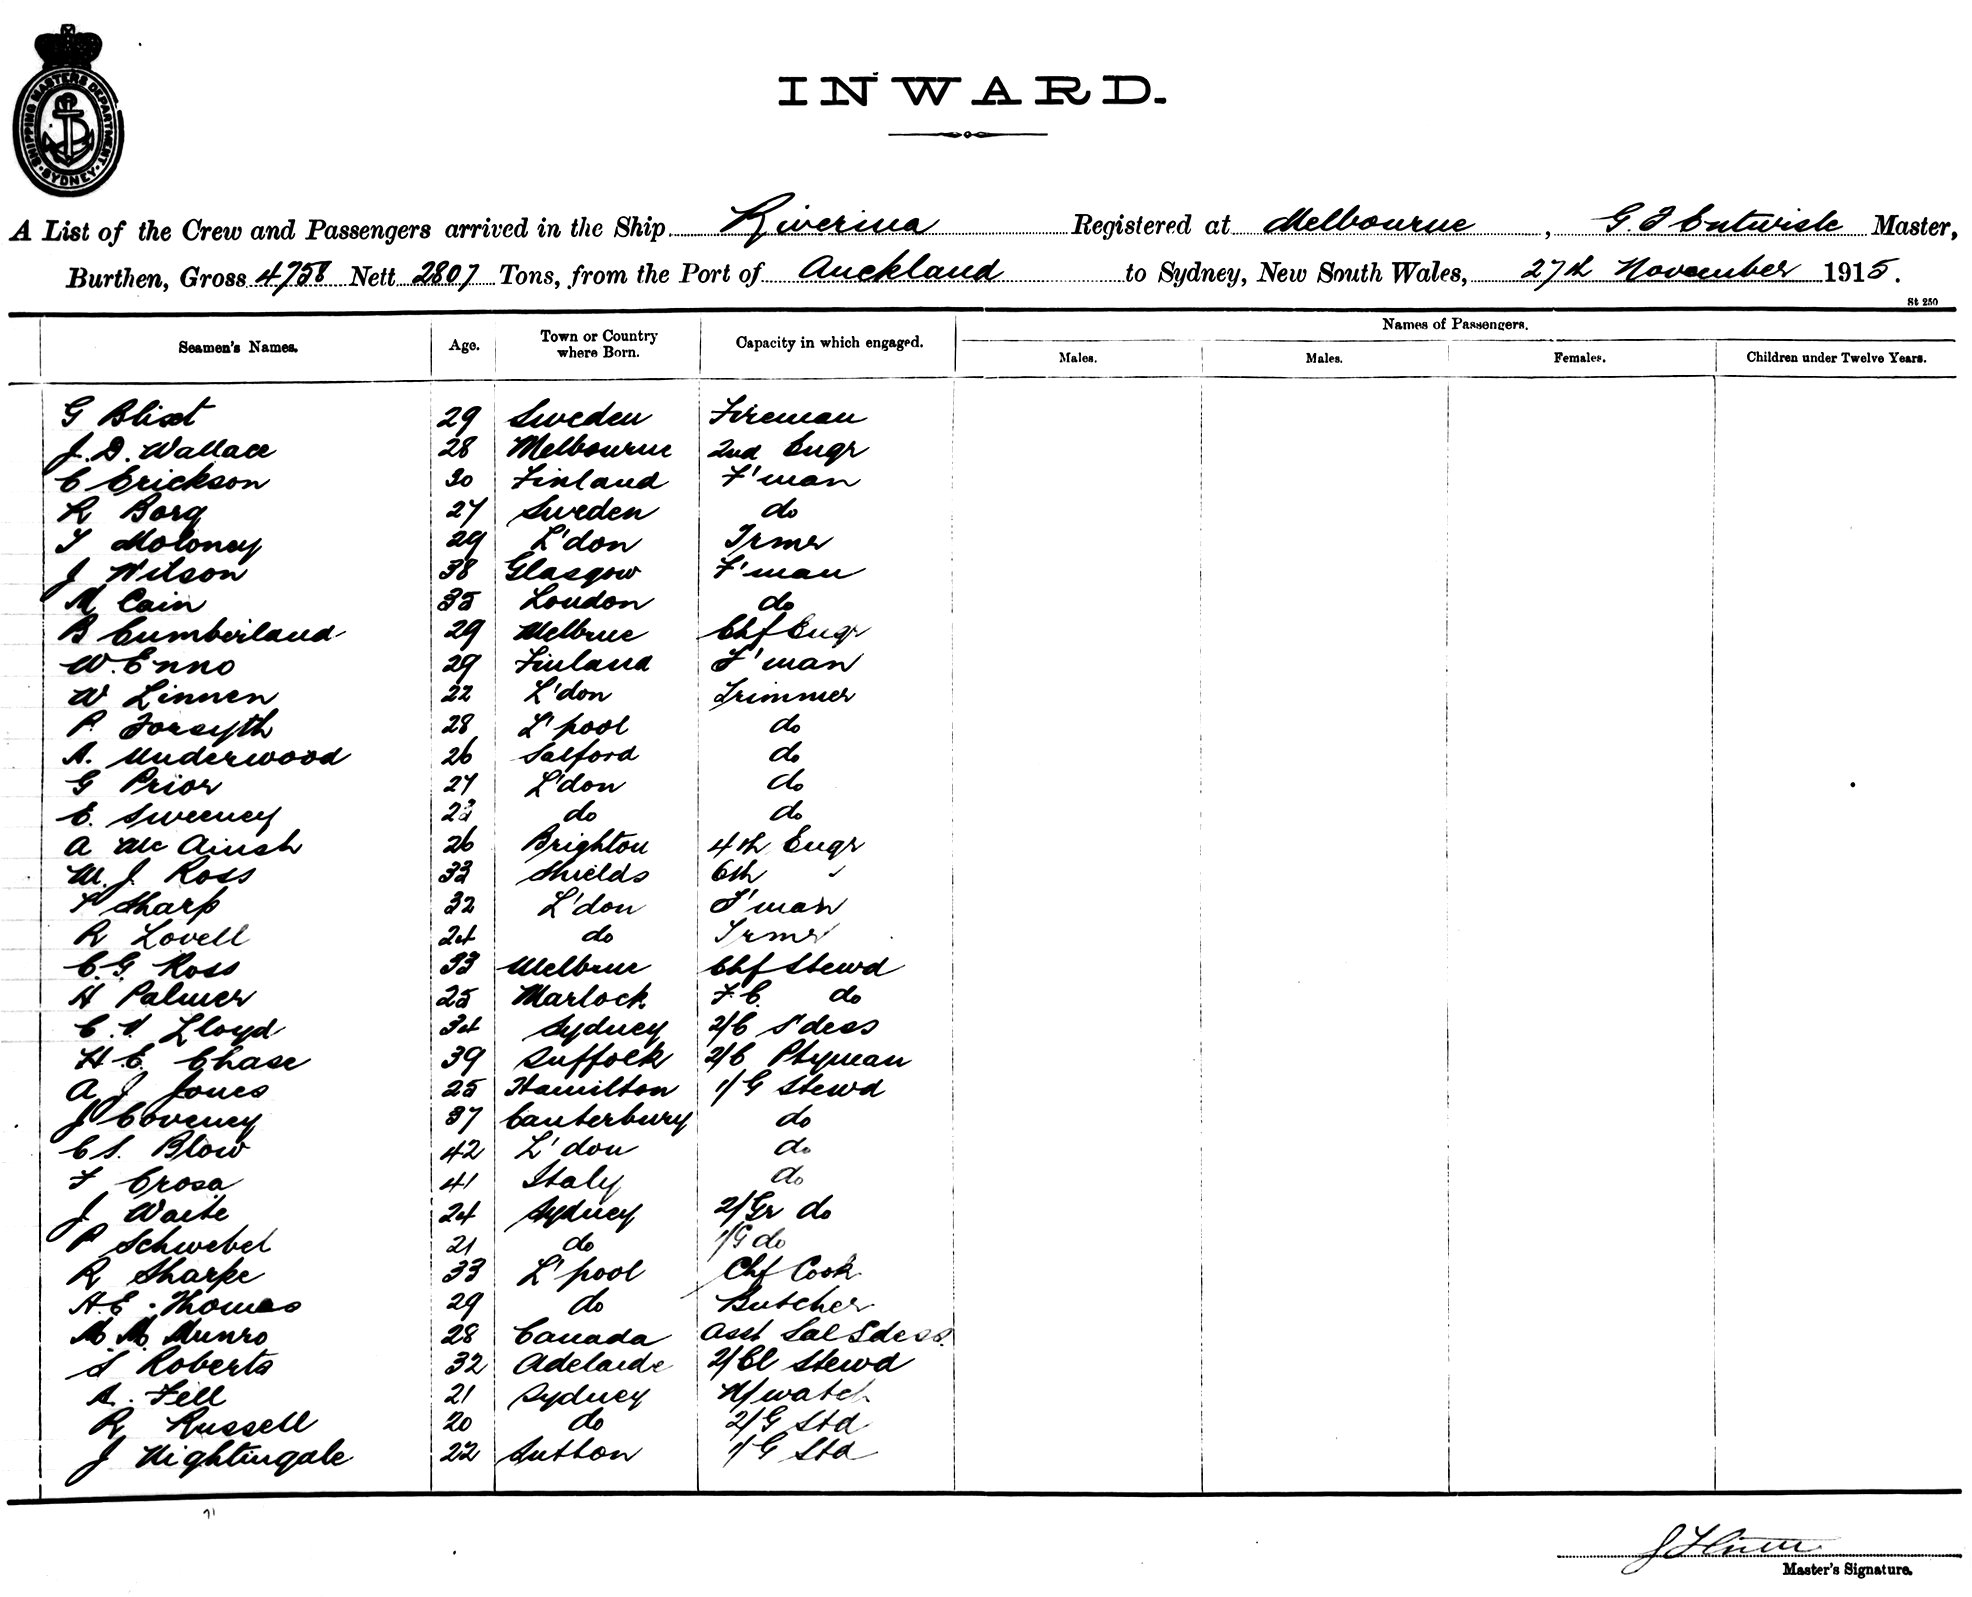 SHIPPING MASTERS DEPARTMENT
SYDNEY
INWARD.
A List of the Crew and Passengers arrived in the Ship Riverina Registered at Melbourne, G. F Entwisle Master,
Burthen, Gross 4758 Nett 2807 Tons, from the Port of Auckland to Sydney, New South Wales, 27th November 1915.
St 250
Seamen's Names. Age. Town or Country where Born. Capacity in which engaged. Names of Passengers.
Males. Males. Females. Children under Twelve Years.
G Blixt 29 Sweden Fireman
J. D. Wallace 28 Melbourne 2nd Engr
C Erickson 30 Finland F'man
R Borg 27 Sweden do
T Moloney 29 L'don Trmr
J Wilson 38 Glasgow F'man
M Cain 35 London do
B Cumberland 29 Melbrne Chf Engr
W. Enno 29 Finland F'man
W Linnen 22 L'don Trimmer
P. Forsyth 28 L'pool do
A. Underwood 26 Salford do
G Prior 27 L'don do
E. Sweeney 23 do do
A Mc Ainsh 26 Brighton 4th Engr
M. J. Ross 33 Shields 6th "
T Sharp 32 L'don F'man
R Lovell 24 do Trmr
C. G. Ross 33 Melbrne Chf Stewd
H Palmer 25 Marlock F. C. do
C. V. Lloyd 34 Sydney 2/C S'dess
H. E. Chase 39 Suffolk 2/C Ptyman
A J Jones 25 Hamilton 1/G Stewd
J Coveney 37 Canterbury do
C S. Blow 42 L'don do
F Crosa 41 Italy do
J Waite 24 Sydney 2/Gr do
P Schwebel 21 do 1/G do
R Sharpe 33 L'pool Chf Cook
H. E. Thomas 29 do Butcher
M. M. Munro 28 Canada Asst Sal Sdess.
S Roberts 32 Adelaide 2/Cl Stewd
A. Fell 21 Sydney N/watch
R Russell 20 do 2/G Std
J Nightingale 22 Sutton 1/G Std
Master's Signature.